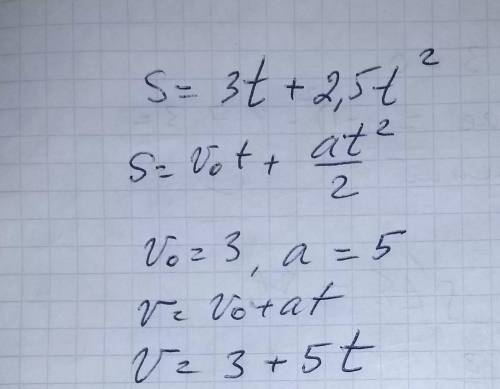 S = 3t + 2,5t²
S = v₀t + at²/2
v₀ = 3, a = 5
v = v₀ + at
v = 3 + 5t